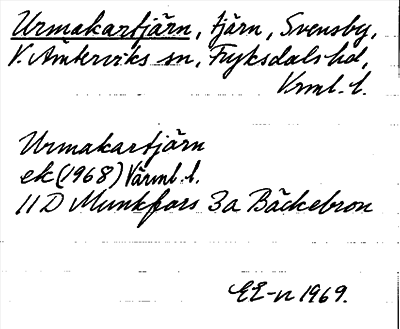 Urmakartjärn, tjärn, Svensby,
V. Ämterviks sn, Fryksdals hd,
Vrml. l.
Urmakartjärn
ek (1968) Värml. l.
11 D Munkfors 3a Bäckebron
EE-n 1969.